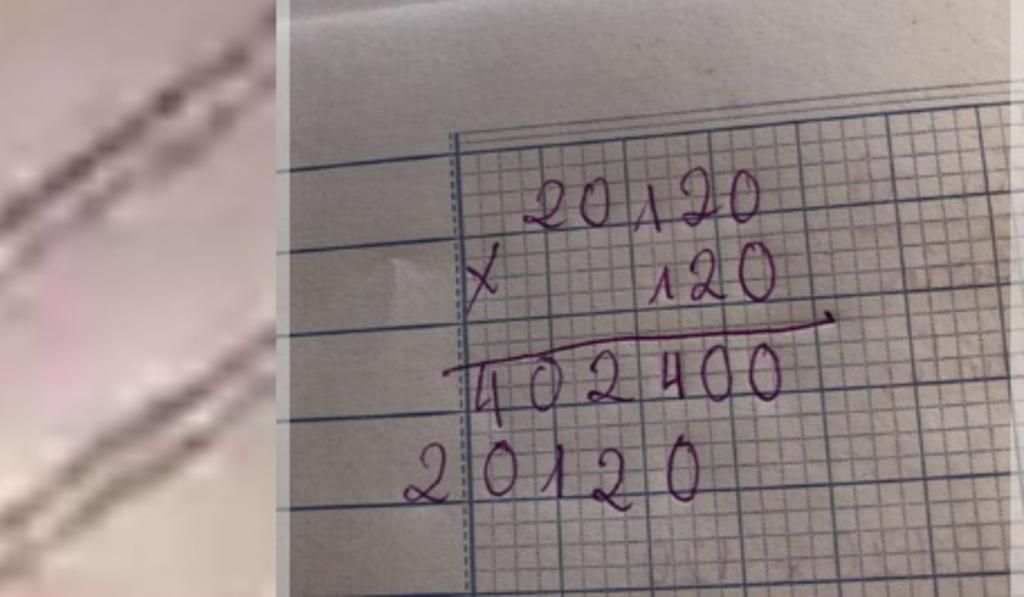 20120
x 120
402400
20120